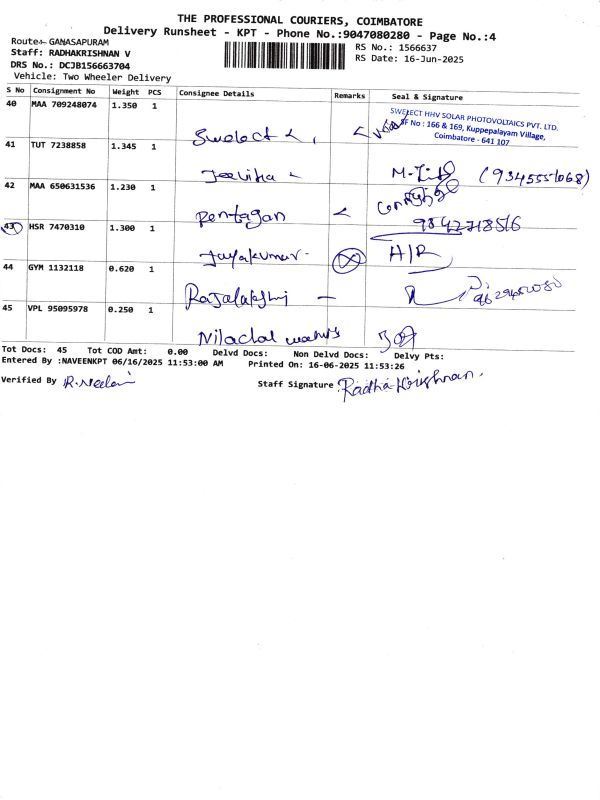 THE PROFESSIONAL COURIERS, COIMBATORE
Delivery Runsheet - KPT - Phone No.:9047080280 - Page No.:4
Route:- GANASAPURAM
Staff: RADHAKRISHNAN V
RS No.: 1566637
DRS No.: DCJB156663704
RS Date: 16-Jun-2025
Vehicle: Two Wheeler Delivery
S No Consignment No Weight PCS Consignee Details Remarks Seal & Signature
40 MAA 709248074 1.350 1 Swelect
SWELECT HHV SOLAR PHOTOVOLTAICS PVT. LTD.
SF No : 166 & 169, Kuppepalayam Village,
Coimbatore - 641 107
41 TUT 7238858 1.345 1 Jeevika (9345551068)
42 MAA 650631536 1.230 1 Pentagan 9842718516
43 HSR 7470310 1.300 1 Jayakumar H/R
44 GYM 1132118 0.620 1
45 VPL 95095978 0.250 1 Nilachal
Tot Docs: 45 Tot COD Amt: 0.00 Delvd Docs: Non Delvd Docs: Delvy Pts:
Entered By :NAVEENKPT 06/16/2025 11:53:00 AM Printed On: 16-06-2025 11:53:26
Verified By
Staff Signature Radha Krishnan.